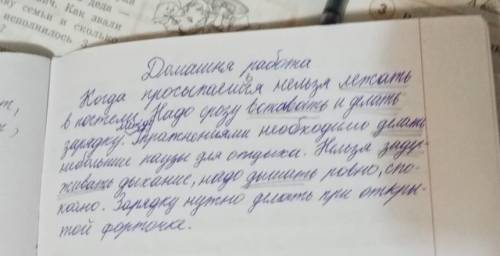 вич. Как звали
ну семьи и сколько
исполнилось
деда —
3
Домашня работа
Когда просыпаемся нельзя лежать
в постеле. Надо сразу вставать и делать
зарядку. Между упражнениями необходимо делать
небольшие паузы для отдыха. Нельзя заду-
живать дыхание, надо дышать ровно, спо-
койно. Зарядку нужно делать при откры-
той форточке.